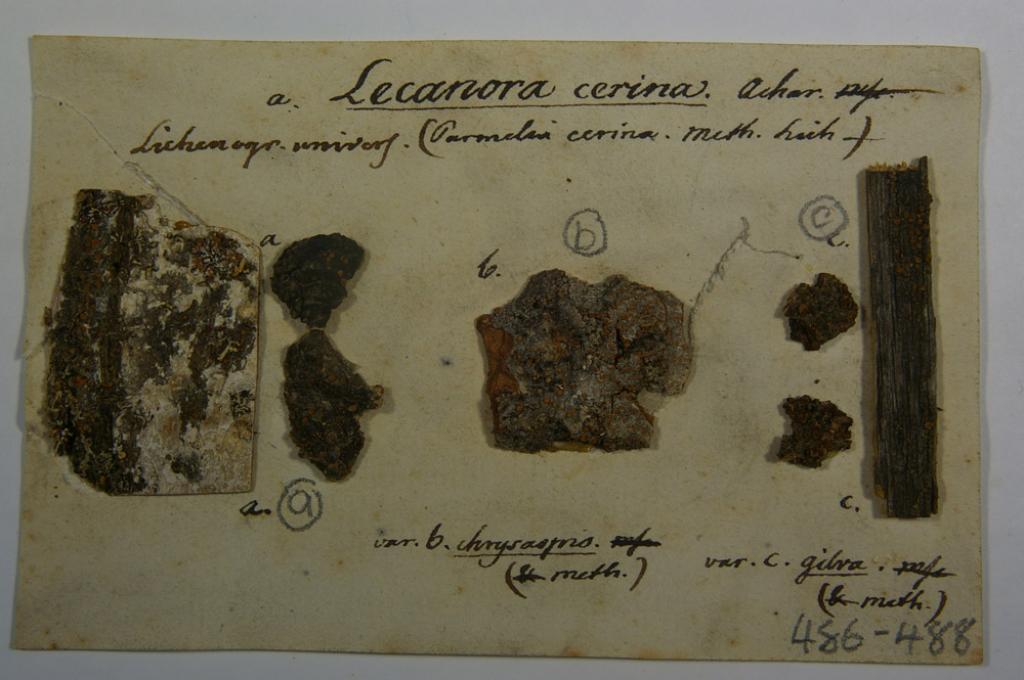 a. Lecanora cerina. Achar. mss.
Lichenogr. univers. (Parmelia cerina. Meth. Lich.)
a
b
c
c.
b.
a.
a
c.
var. b. chrysaspis. mss
(& meth.)
var. c. gilva. mss
(& meth.)
486-488